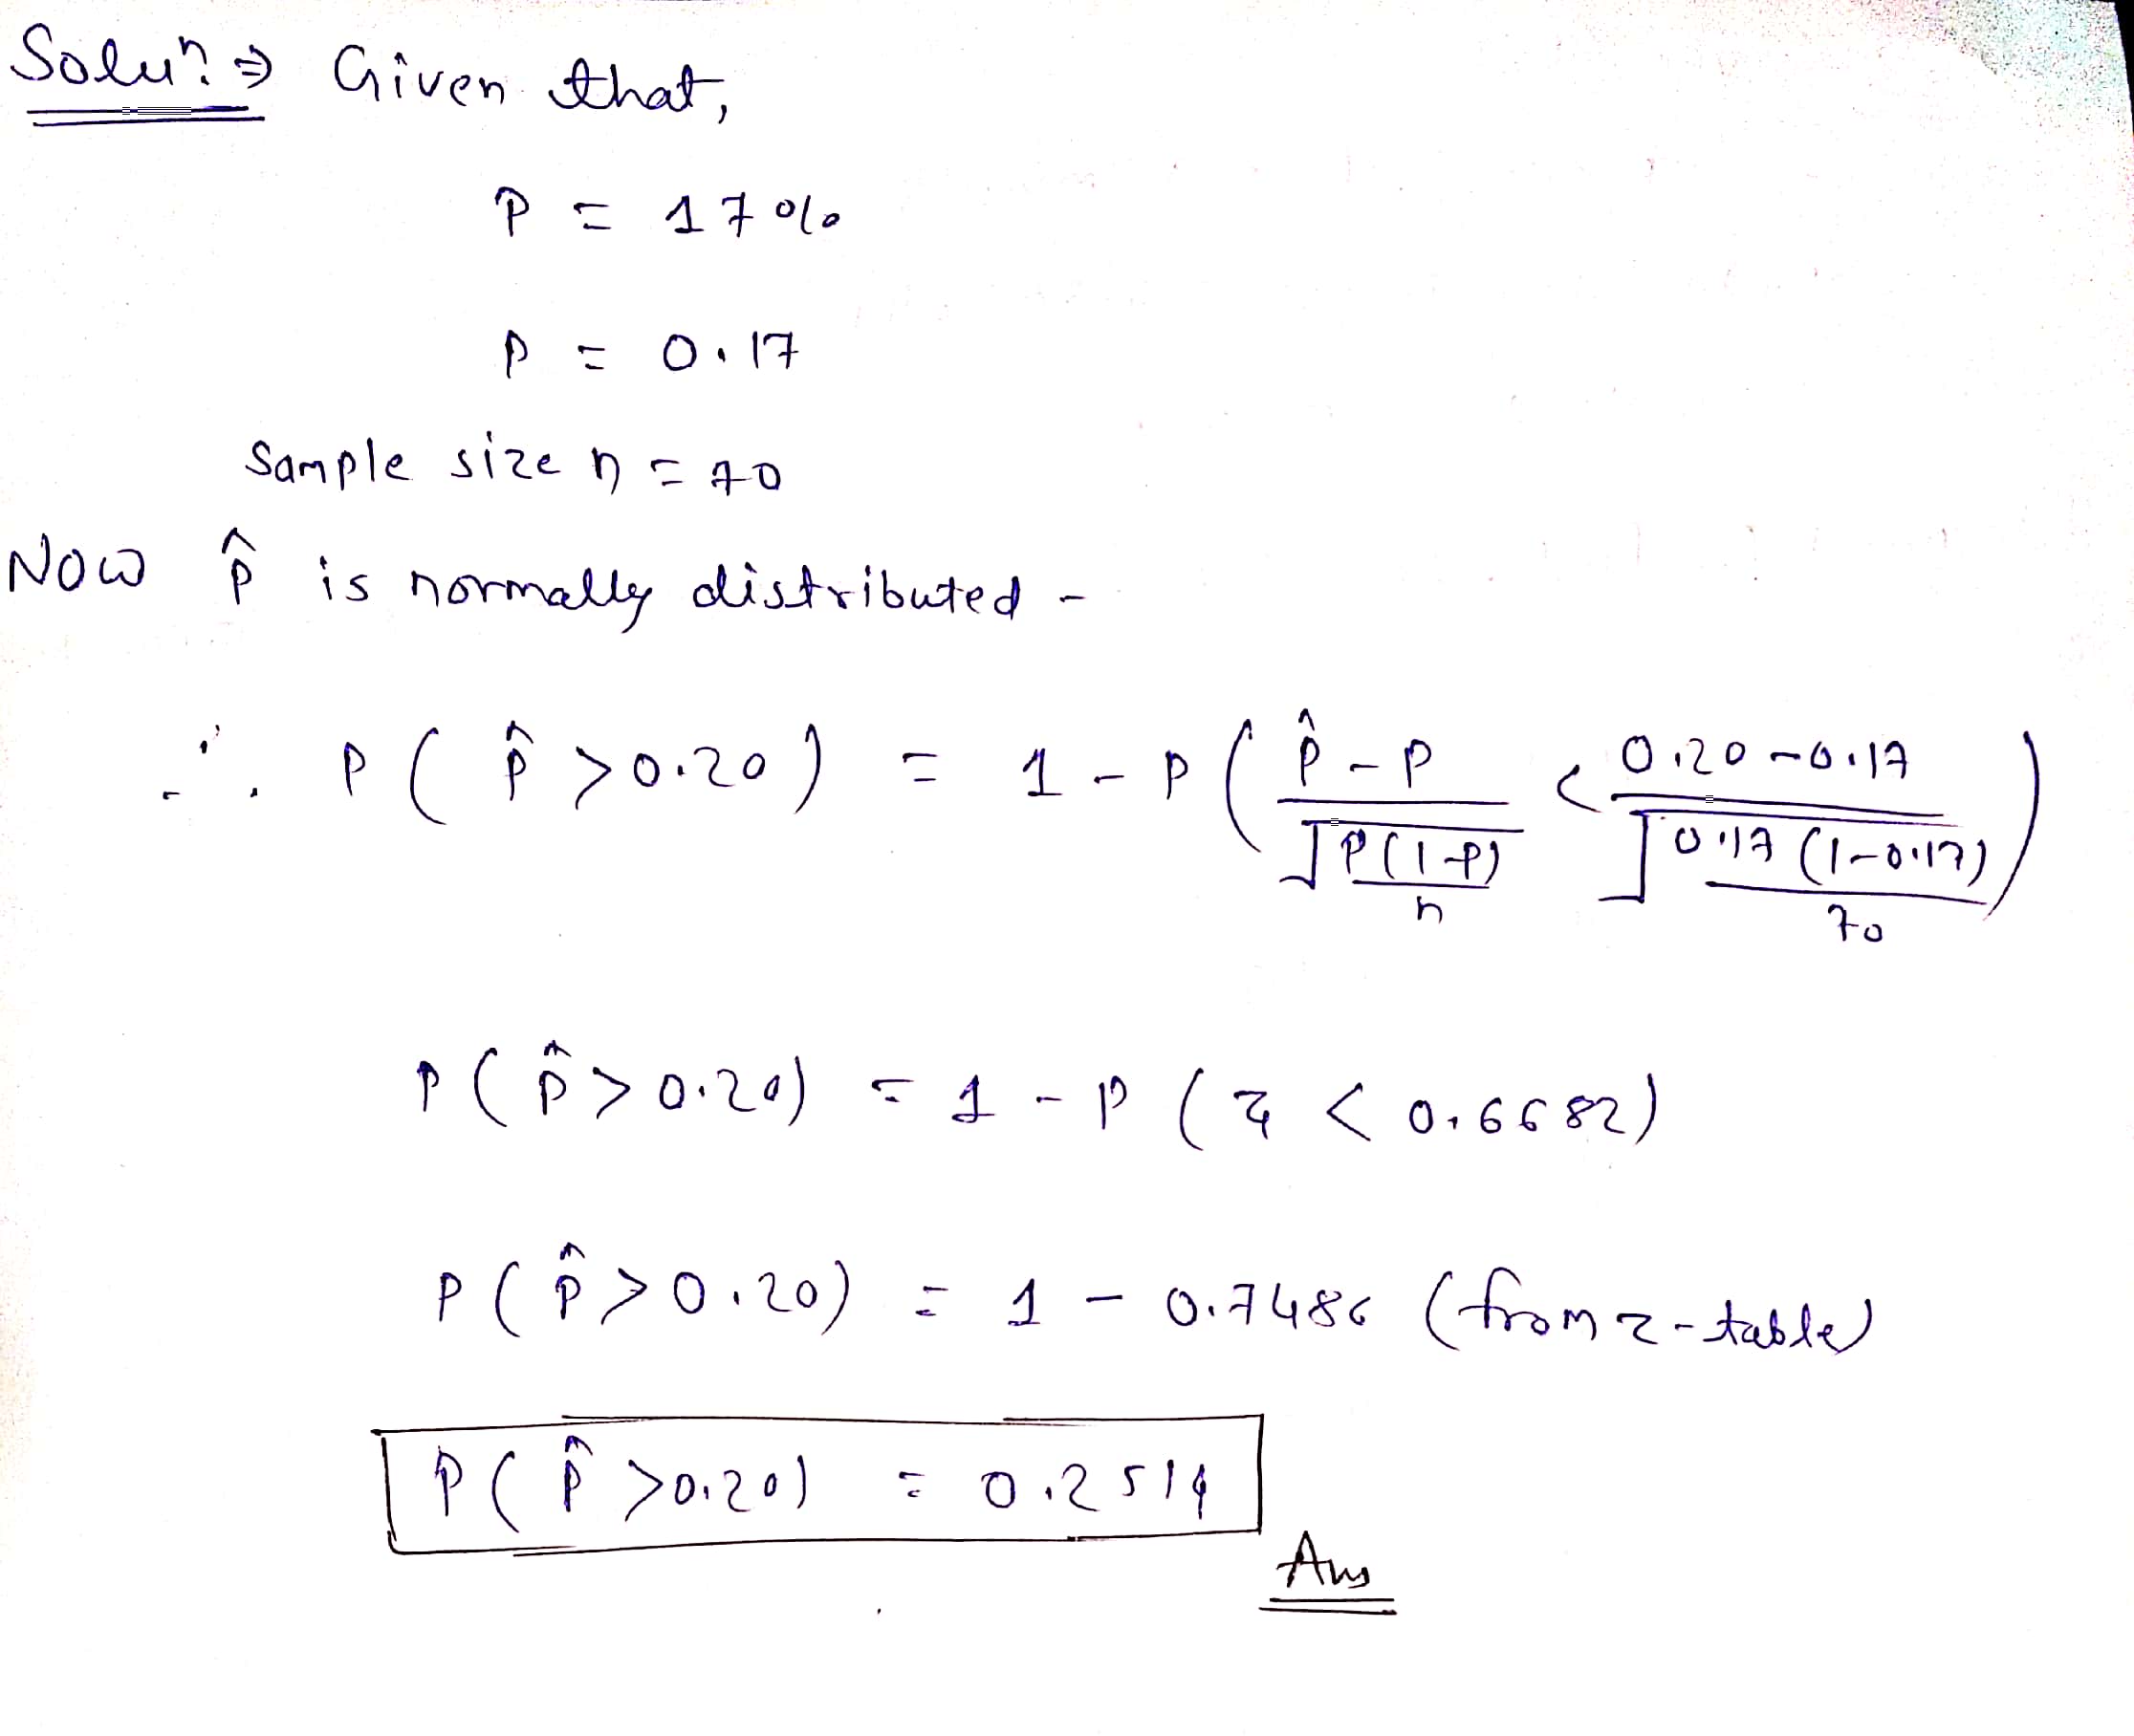 Soluⁿ. ⇒ Given that,
P = 17%
p = 0.17
Sample size n = 70
Now p̂ is normally distributed -
∴ P ( p̂ > 0.20 ) = 1 - P ( (p̂ - p) / √(P(1-P)/n) < (0.20 - 0.17) / √(0.17 (1-0.17)/70) )
P ( p̂ > 0.20) = 1 - P ( z < 0.6682)
P ( p̂ > 0.20) = 1 - 0.7486 (from z-table)
P ( p̂ > 0.20) = 0.2514
Ans